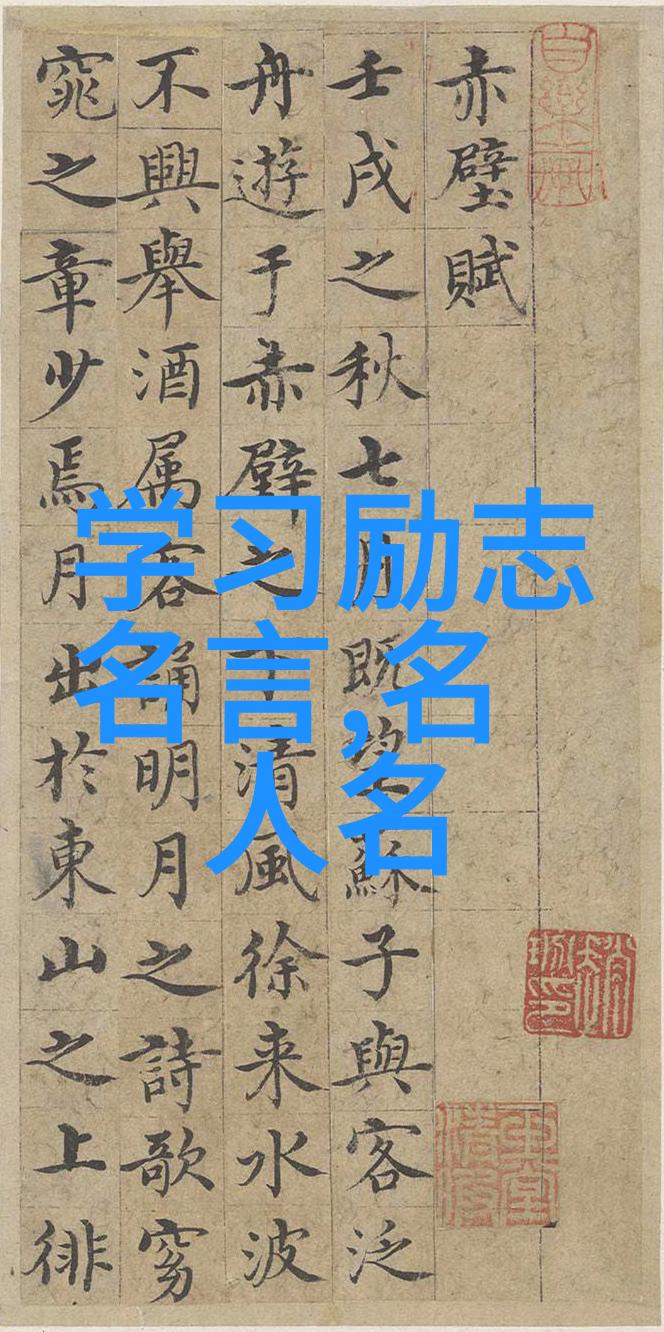 赤壁賦
壬戌之秋七月既望蘇子與客泛
舟遊于赤壁之下清風徐来水波
不興舉酒属客誦明月之詩歌窈
窕之章少焉月出於東山之上徘
学习励志
名言,名
人名